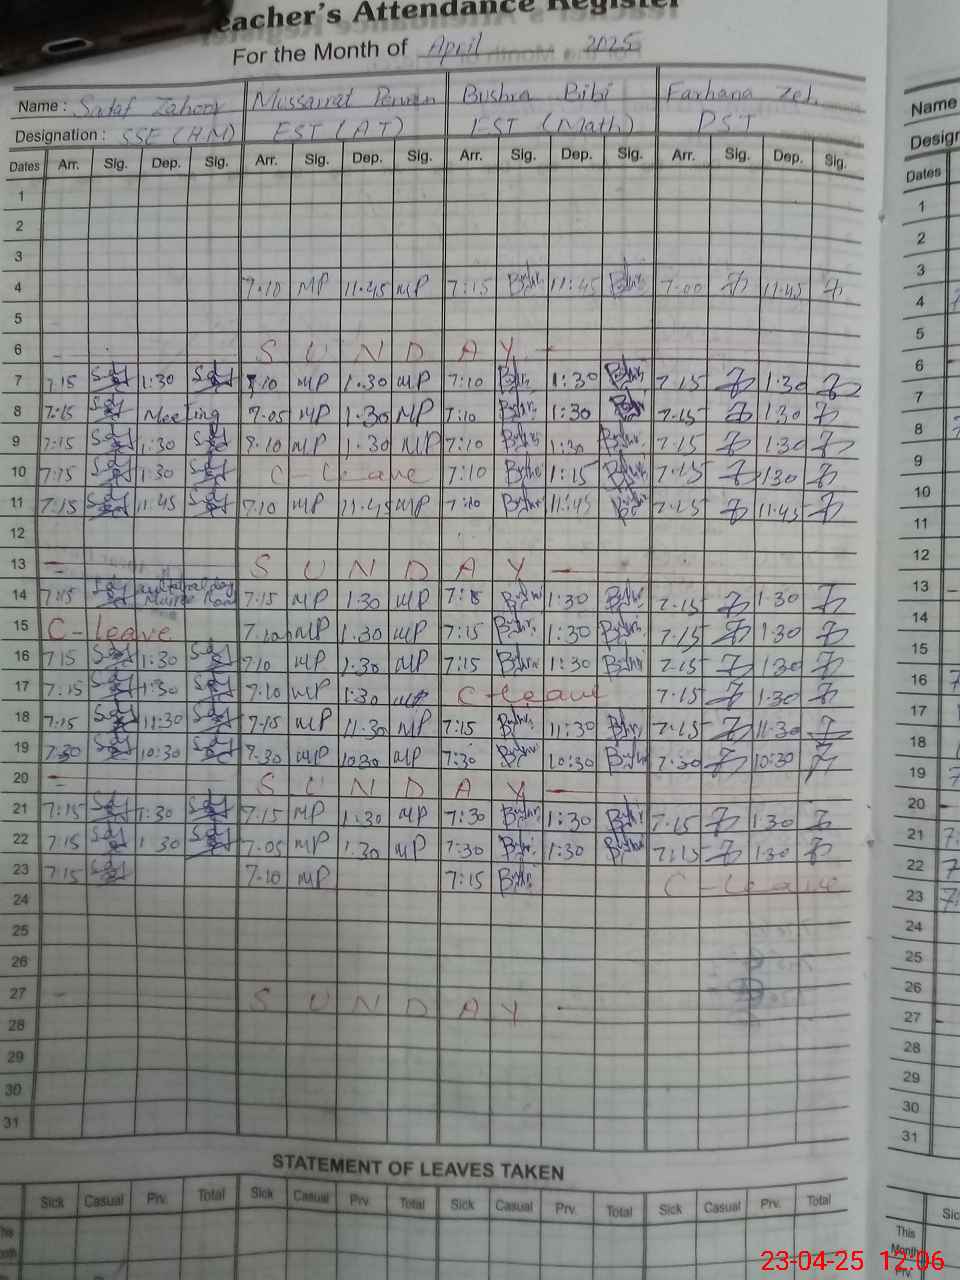 Teacher's Attendance Register
For the Month of April 2025
Name : Sadaf Zahoor Mussarrat Perveen Bushra Bibi Farhana Zeb
Designation : SSE (HM) EST (AT) EST (Math) PST
Dates Arr. Sig. Dep. Sig. Arr. Sig. Dep. Sig. Arr. Sig. Dep. Sig. Arr. Sig. Dep. Sig.
1
2
3
4 7.10 MP 11.45 MP 7:15 11:45 7.00 11.45
5
6 SUNDAY
7 7.15 1:30 7.10 MP 1.30 MP 7:10 1:30 7.15 1.30
8 7:15 Meeting 7.05 MP 1.30 MP 7:10 1:30 7.15 1.30
9 7:15 1:30 7.10 MP 1.30 MP 7:10 1:30 7.15 1.30
10 7:15 1:30 C-Leave 7:10 1:15 7.15 1.30
11 7:15 11:45 7.10 MP 11.45 MP 7:10 11:45 7.15 11.45
12
13 SUNDAY
14 7:15 7.15 MP 1.30 MP 7:15 1:30 7.15 1.30
15 C-leave 7.10 MP 1.30 MP 7:15 1:30 7.15 1.30
16 7:15 1:30 7.10 MP 1.30 MP 7:15 1:30 7.15 1.30
17 7:15 1:30 7.10 MP 1.30 MP C-leave 7.15 1.30
18 7:15 11:30 7.15 MP 11.30 MP 7:15 11:30 7.15 11.30
19 7:30 10:30 7.30 MP 10.30 MP 7:30 10:30 7.30 10:30
20 SUNDAY
21 7:15 1:30 7.15 MP 1.30 MP 7:30 1:30 7.15 1.30
22 7:15 1:30 7.05 MP 1.30 MP 7:30 1:30 7:15 1.30
23 7:15 7.10 MP 7:15 C-Leave
24
25
26
27 SUNDAY
28
29
30
31
STATEMENT OF LEAVES TAKEN
Sick Casual Prv. Total Sick Casual Prv. Total Sick Casual Prv. Total Sick Casual Prv. Total
This
Name
Dates
1
2
3
4
5
6
7
8
9
10
11
12
13
14
15
16
17
18
19
20
21
22
23
24
25
26
27
28
29
30
31
This
Month
Prv.
23-04-25 12:06